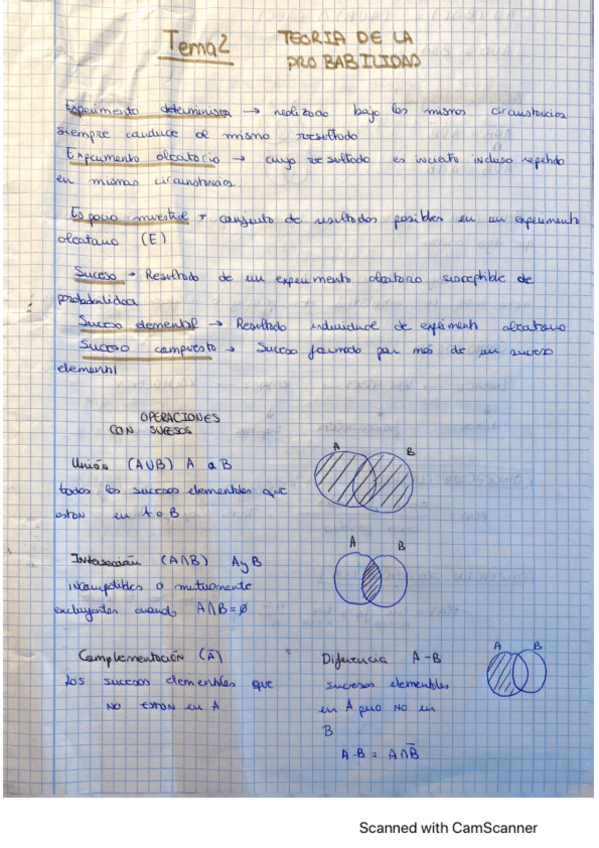 Tema 2 TEORIA DE LA
PROBABILIDAD
Experimento determinista → realizado bajo las mismas circunstancias
siempre conduce al mismo resultado
Experimento aleatorio → cuyo resultado es incierto incluso repetido
en mismas circunstancias
Espacio muestral → conjunto de resultados posibles en un experimento
aleatorio (E)
Suceso → Resultado de un experimento aleatorio susceptible de
probabilidad
Suceso elemental → Resultado individual de experiment aleatorio
Suceso compuesto → Suceso formado por más de un suceso
elemental
OPERACIONES
CON SUCESOS
Unión (A∪B) A o B
todos los sucesos elementales que
estan en A o B
A B
Intersección (A∩B) A y B
incompatibles o mutuamente
excluyentes cuando A∩B=∅
A B
Complementación (Ā)
los sucesos elementales que
NO ESTAN en A
Diferencia A-B
sucesos elementales
en A pero NO en
B
A-B = A∩B̄
A B
Scanned with CamScanner